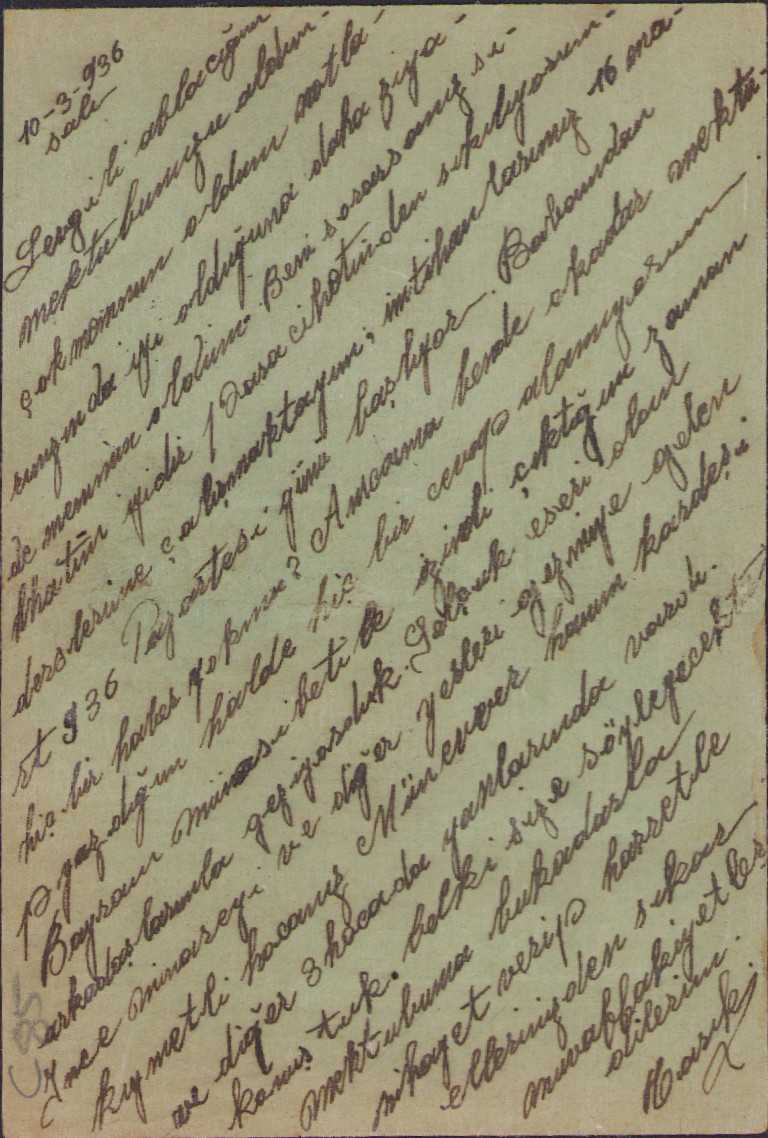 10-3-936
salı
Sevgili ablacığım
mektubunuzu aldım.
çok memnun oldum notla-
rınızında iyi olduğuna daha ziya-
de memnun oldum. Beni sorarsanız sı-
hhatim yidir Para cihetinden sıkılıyorum.
derslerime çalışmaktayım, imtihanlarımız 16 ma-
rt 936 Pazartesi günü başlıyor. Babamdan
hiç bir haber yokmu? Amcama bende okadar mektu-
p yazdığım halde hiç bir cevap alamıyorum.
Bayram münasibetile izinli çıktığım zaman
arkadaşlarımla geziyorduk. Selçuk eseri olan
İnce minareyi ve diğer yerleri gezmiye gelen
kıymetli hocanız Münevver hanım kardeşi
ve diğer 3 hocada yanlarında vardı.
konuştuk. belki size söyleyecekti
mektubuma bukadarla
nihayet verip hasretle
ellerinizden sıkar
muvaffakiyetler
dilerim.
C 85